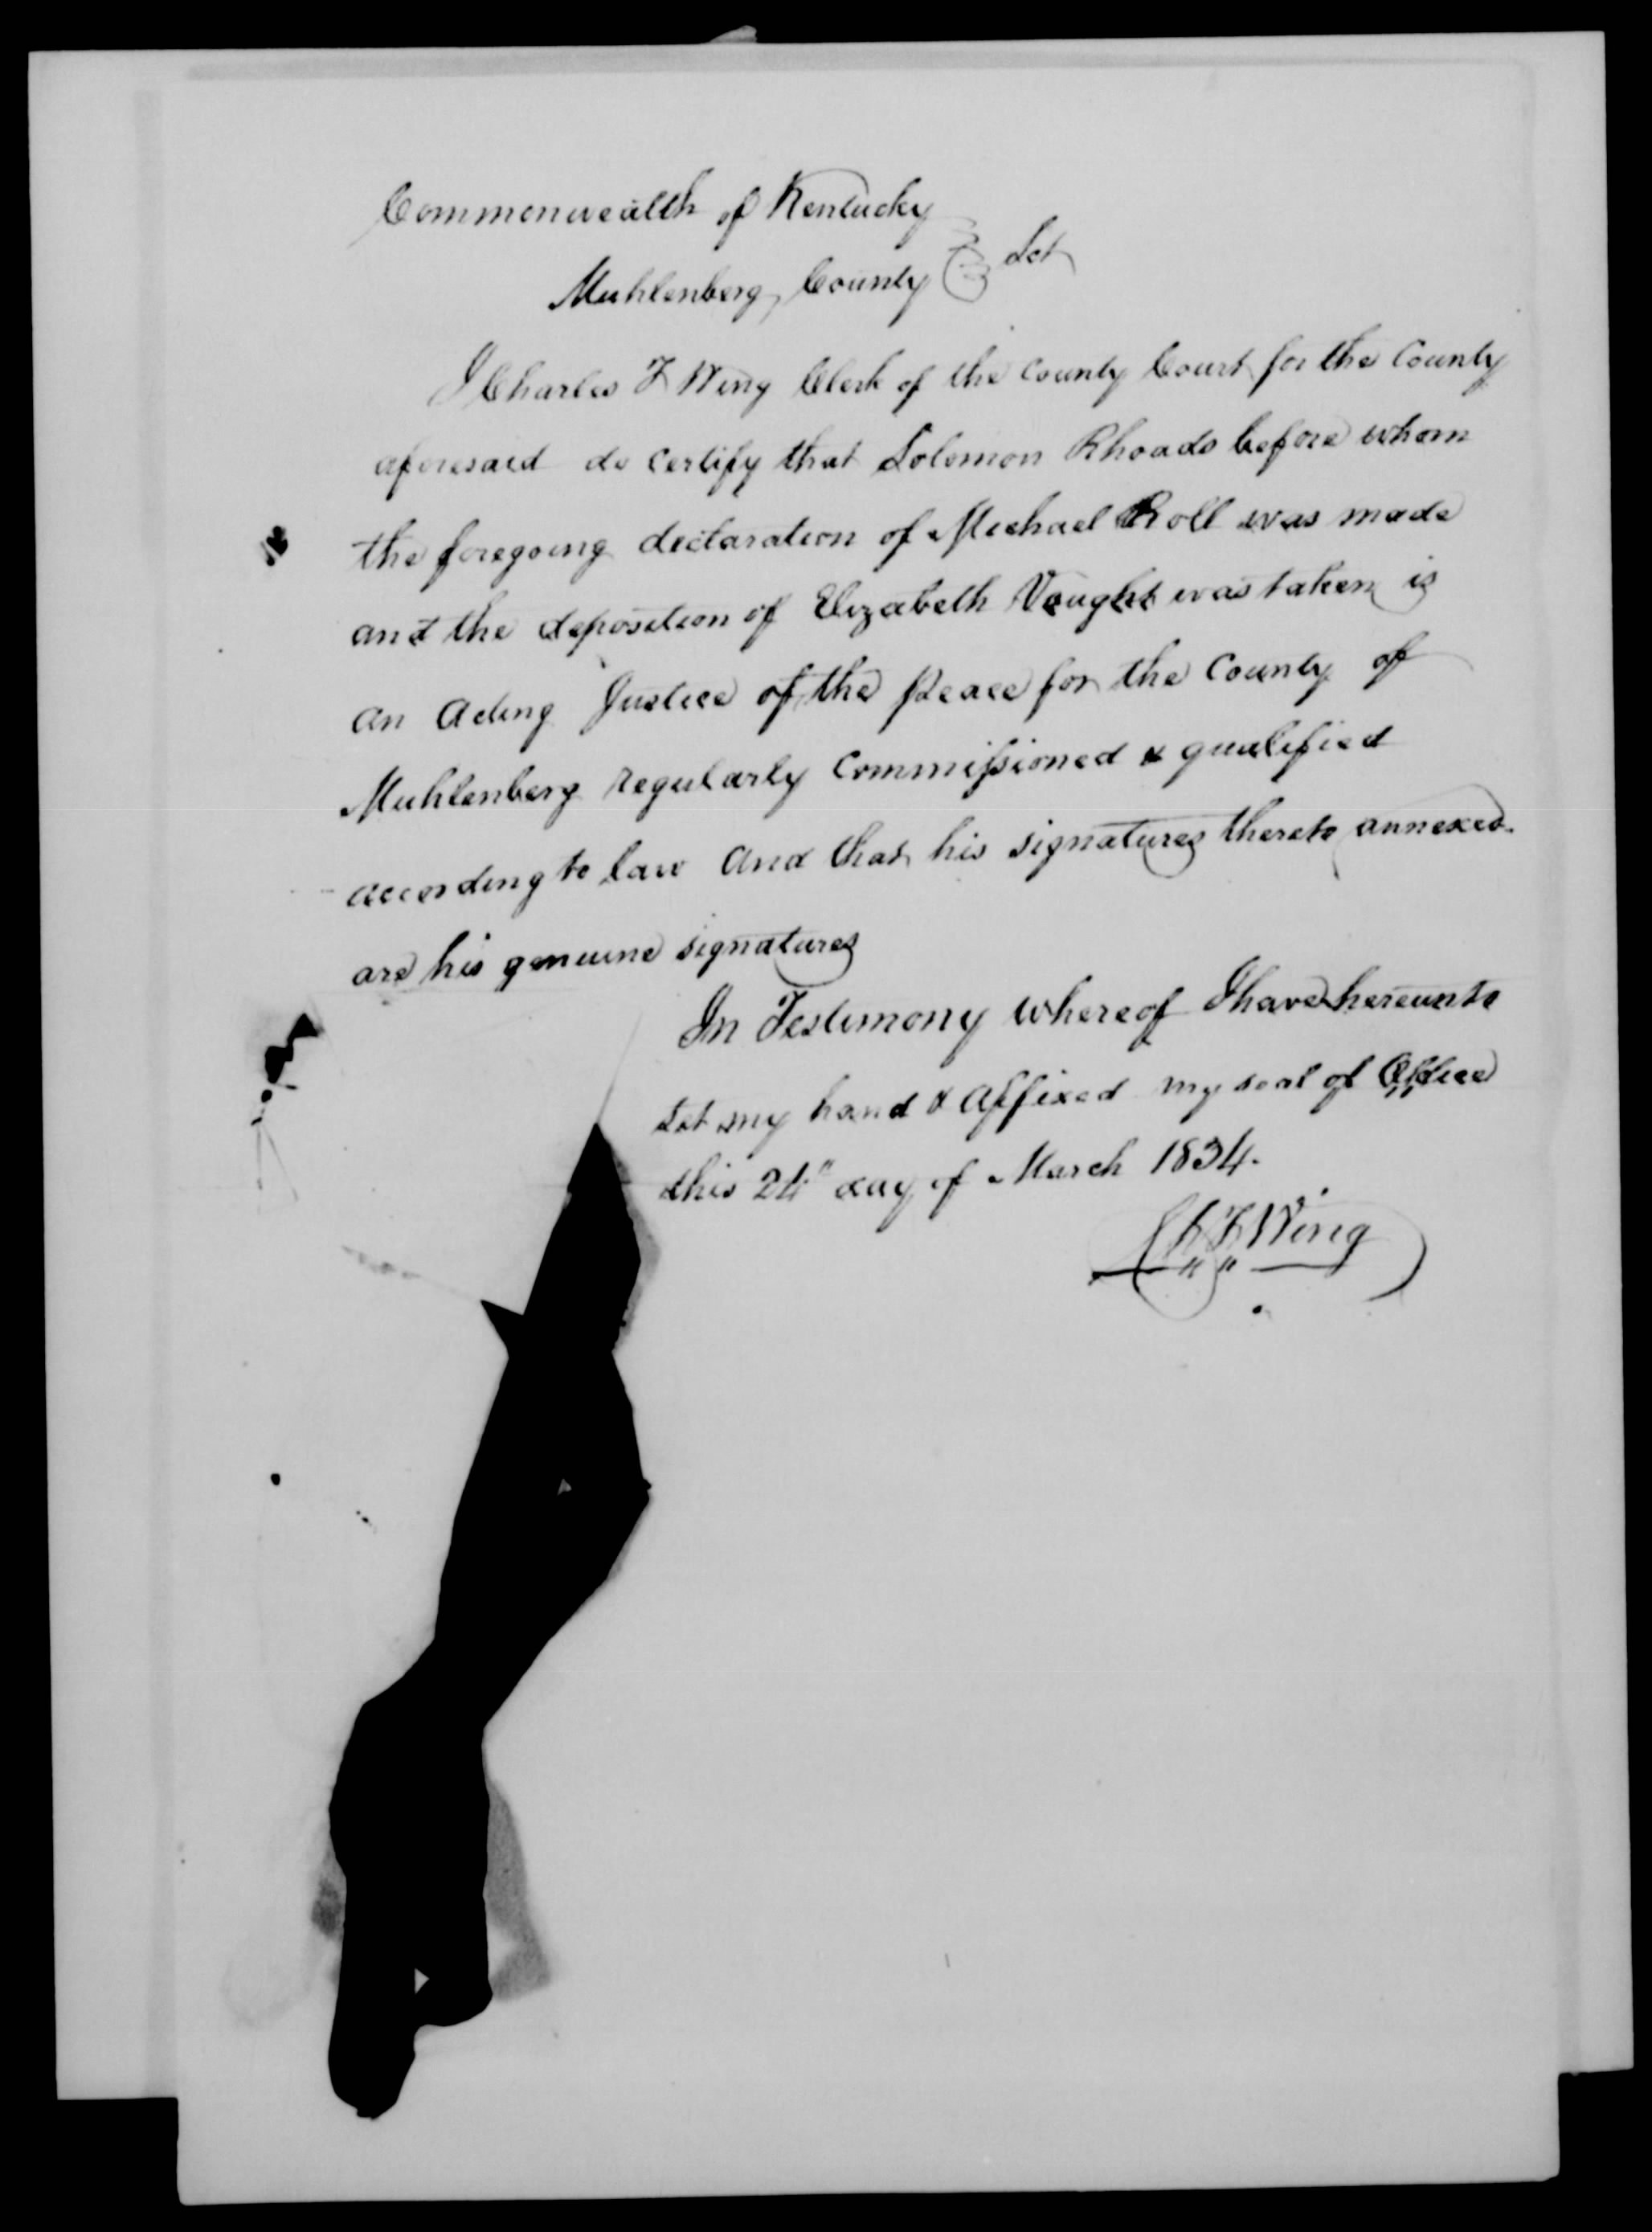 Commonwealth of Kentucky
Muhlenberg County Sct
I Charles F Wing Clerk of the County Court for the County
aforesaid do certify that Solomon Rhoads before whom
the foregoing declaration of Michael Roll was made
and the deposition of Elizabeth Vaught was taken is
an acting Justice of the Peace for the County of
Muhlenberg regularly commissioned & qualified
according to law and that his signatures thereto annexed
are his genuine signatures
In Testimony whereof I have hereunto
set my hand & affixed my seal of Office
this 24" day of March 1834.
Ch F Wing